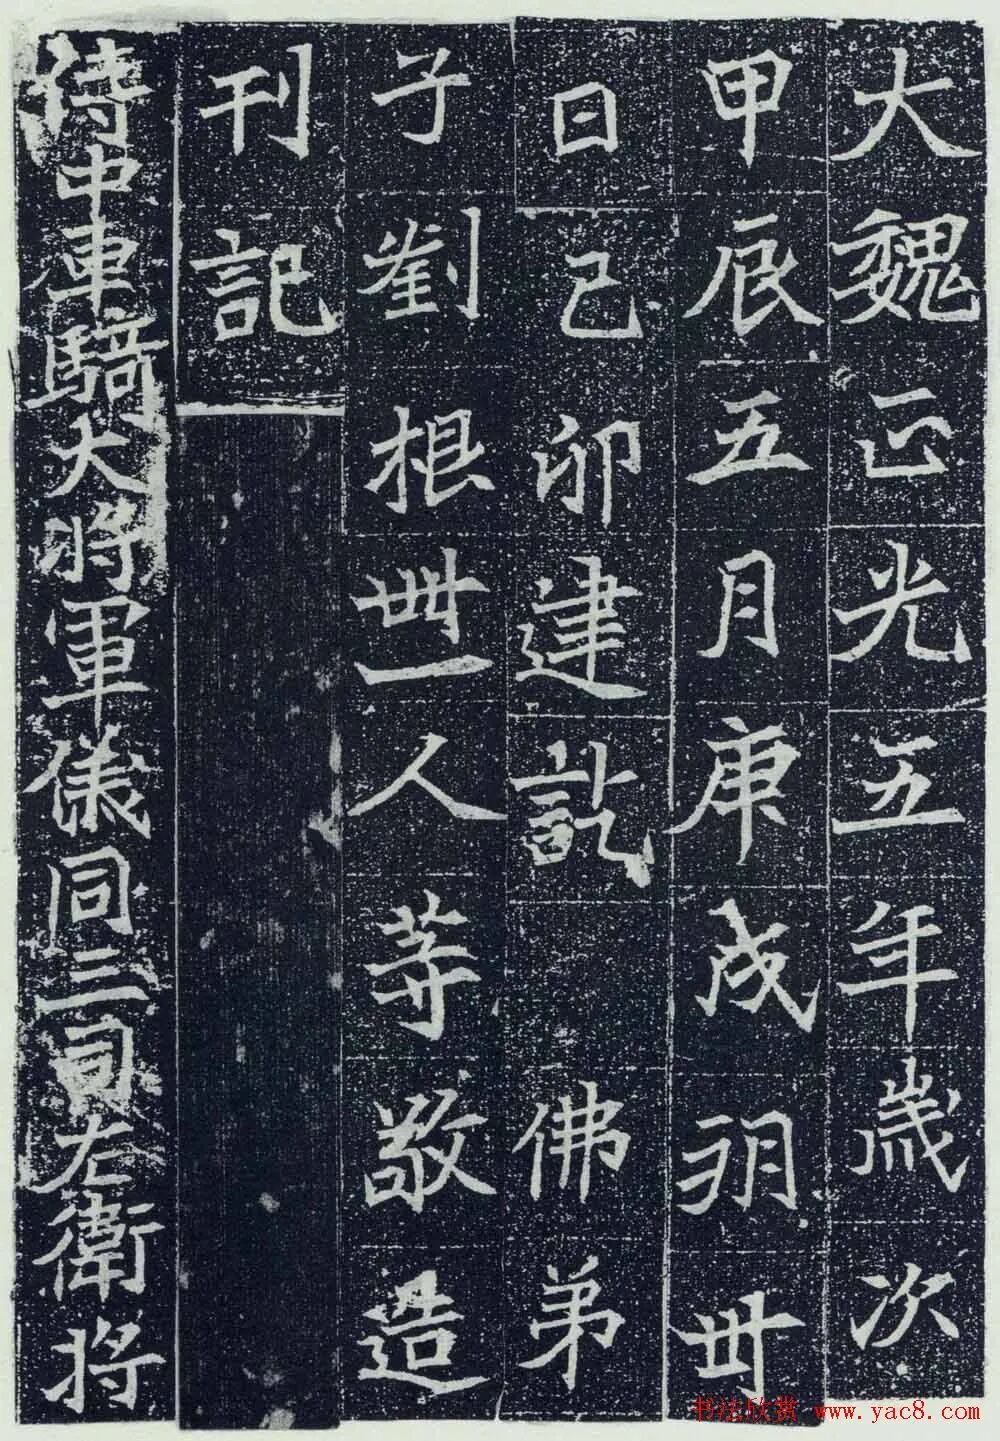 大魏正光五年歳次
甲辰五月庚戌朔卅
日己卯建訖佛弟
子劉根卌一人等敬造
刊記
侍中車騎大將軍儀同三司右衛將
书法欣赏 www.yac8.com